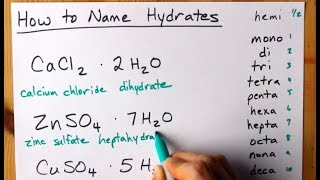 How to Name Hydrates
CaCl₂ · 2H₂O
calcium chloride dihydrate
ZnSO₄ · 7H₂O
zinc sulfate heptahydra
CuSO₄ · 5H₂
hemi ½
mono 1
di 2
tri 3
tetra 4
penta 5
hexa 6
hepta 7
octa 8
nona 9
deca 10